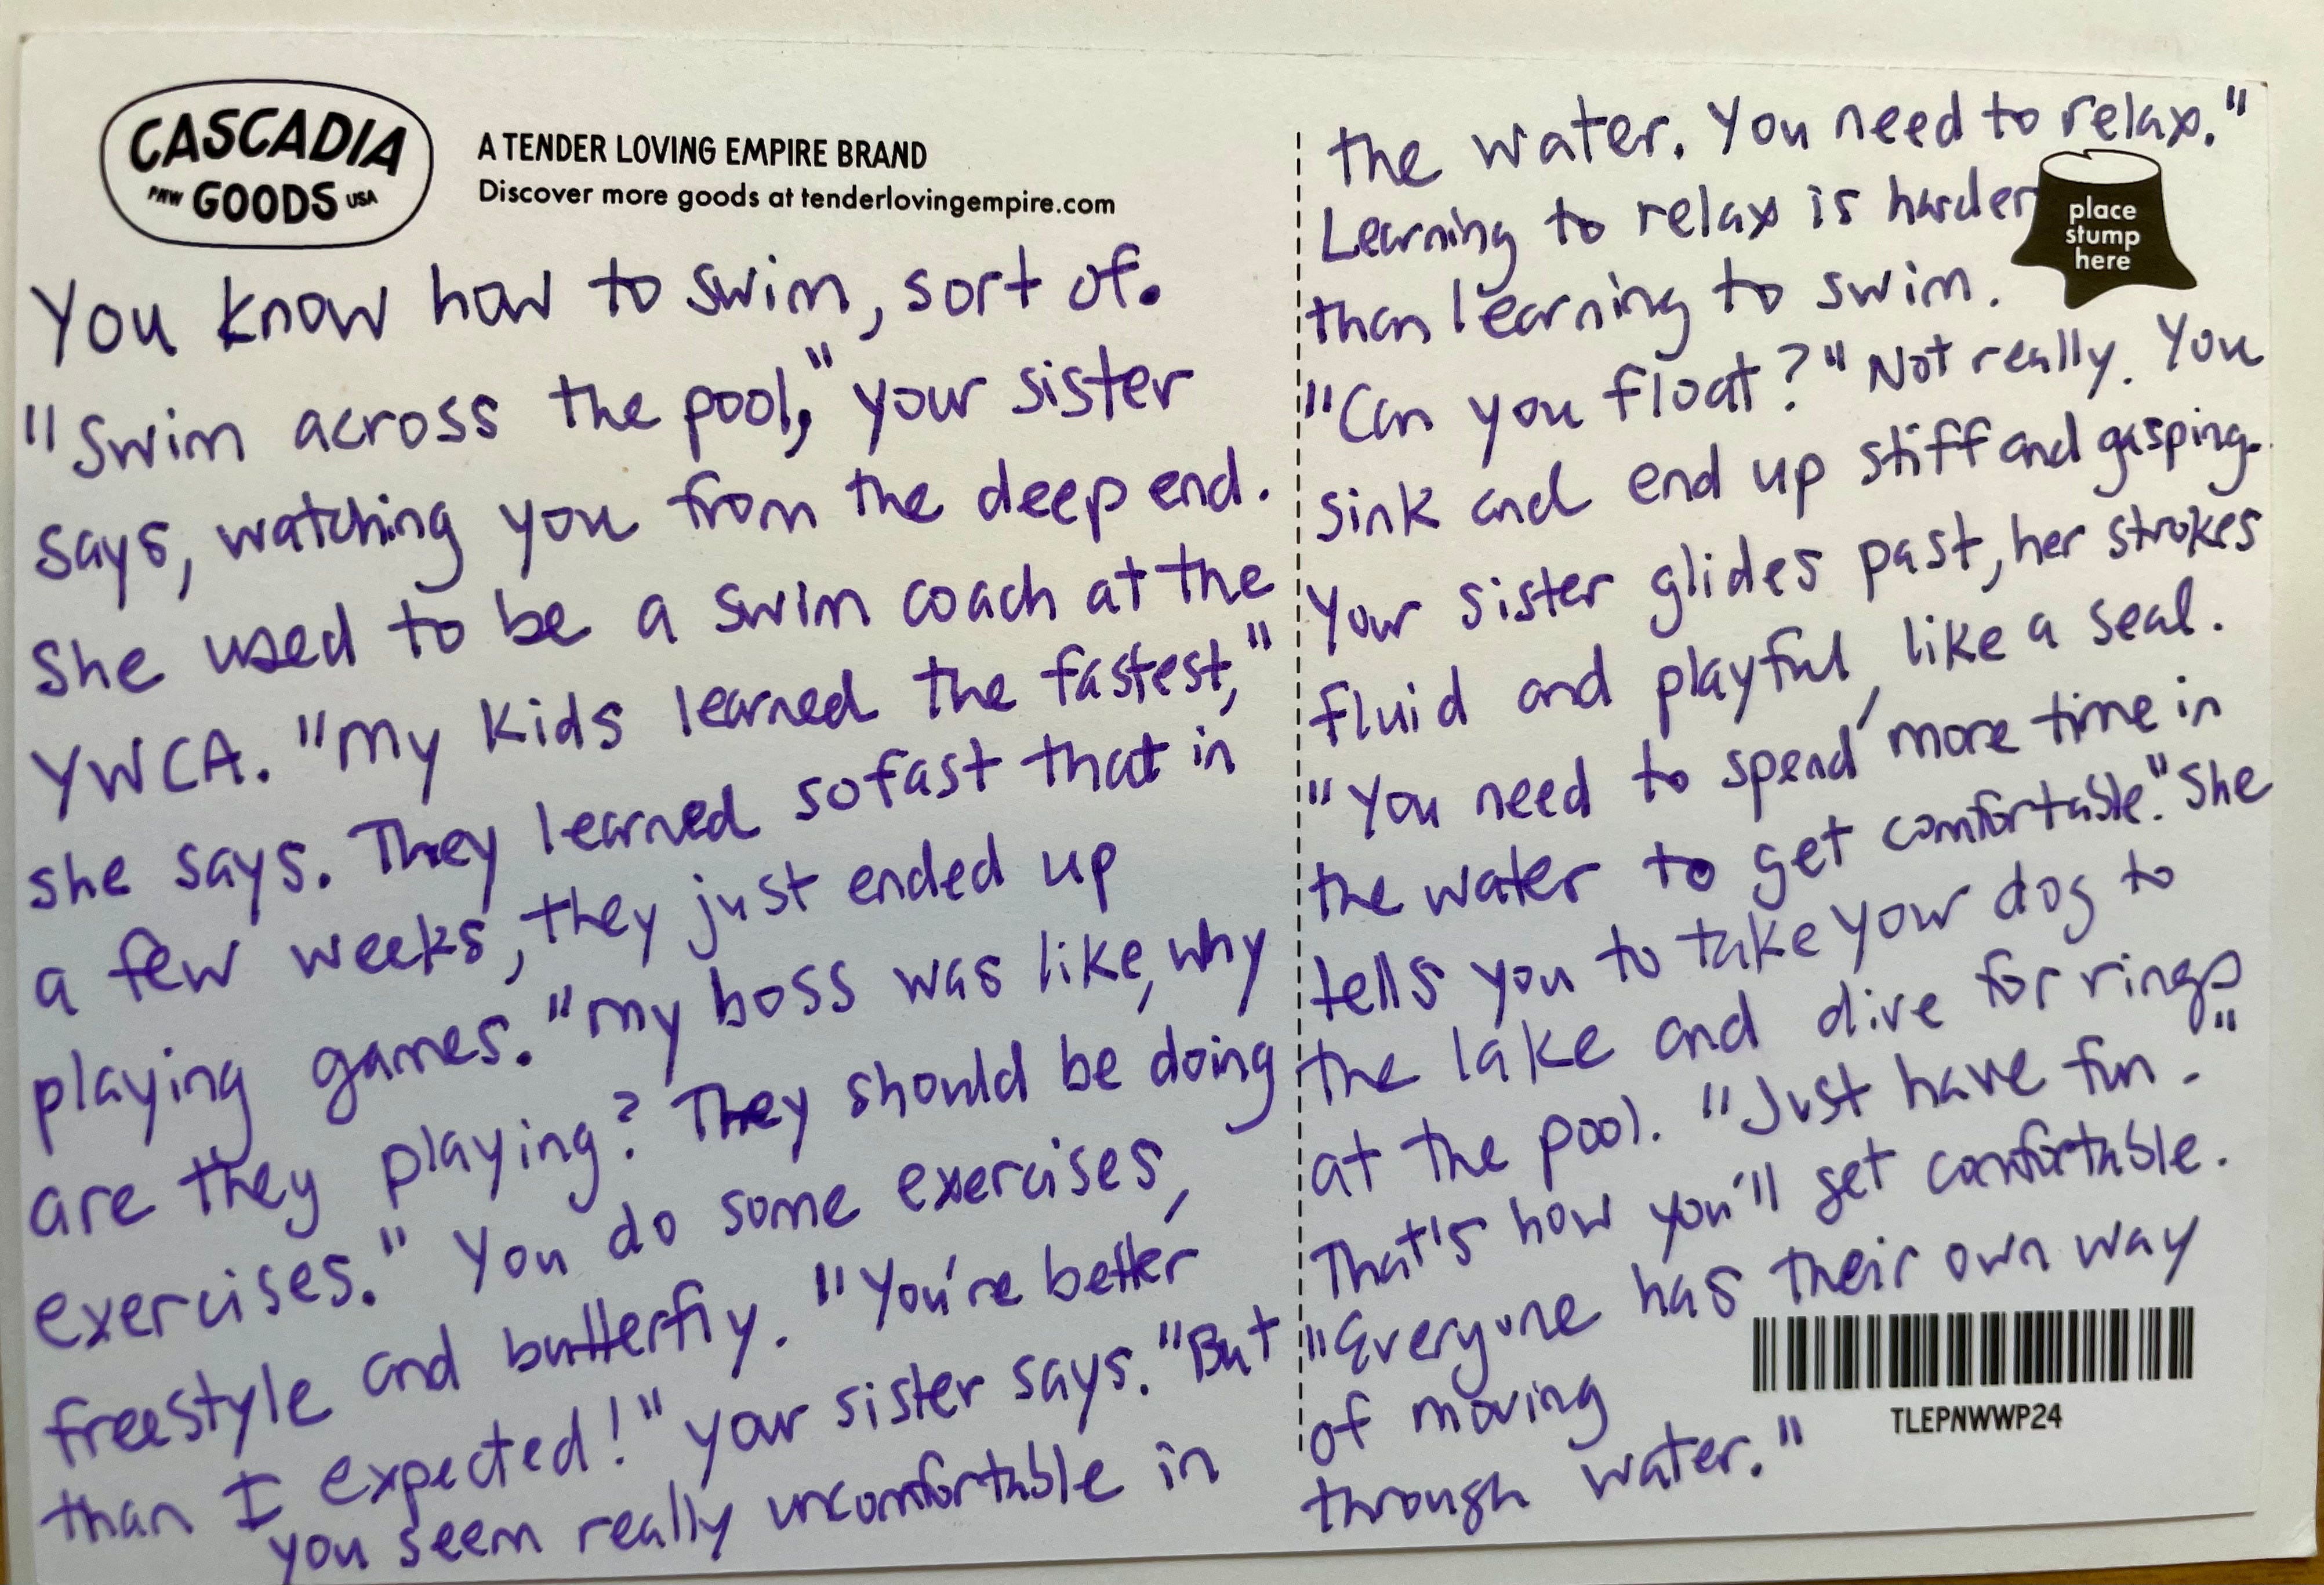 CASCADIA
PNW GOODS USA
A TENDER LOVING EMPIRE BRAND
Discover more goods at tenderlovingempire.com
You know how to swim, sort of.
"Swim across the pool," your sister
says, watching you from the deep end.
She used to be a swim coach at the
YWCA. "My kids learned the fastest,"
she says. They learned so fast that in
a few weeks, they just ended up
playing games. "My boss was like, why
are they playing? They should be doing
exercises." You do some exercises,
freestyle and butterfly. "You're better
than I expected!" your sister says. "But
you seem really uncomfortable in
the water. You need to relax."
Learning to relax is harder
than learning to swim.
"Can you float?" Not really. You
sink and end up stiff and gasping.
Your sister glides past, her strokes
fluid and playful, like a seal.
"You need to spend more time in
the water to get comfortable." She
tells you to take your dog to
the lake and dive for rings
at the pool. "Just have fun."
That's how you'll get comfortable.
"Everyone has their own way
of moving
through water."
place
stump
here
TLEPNWWP24